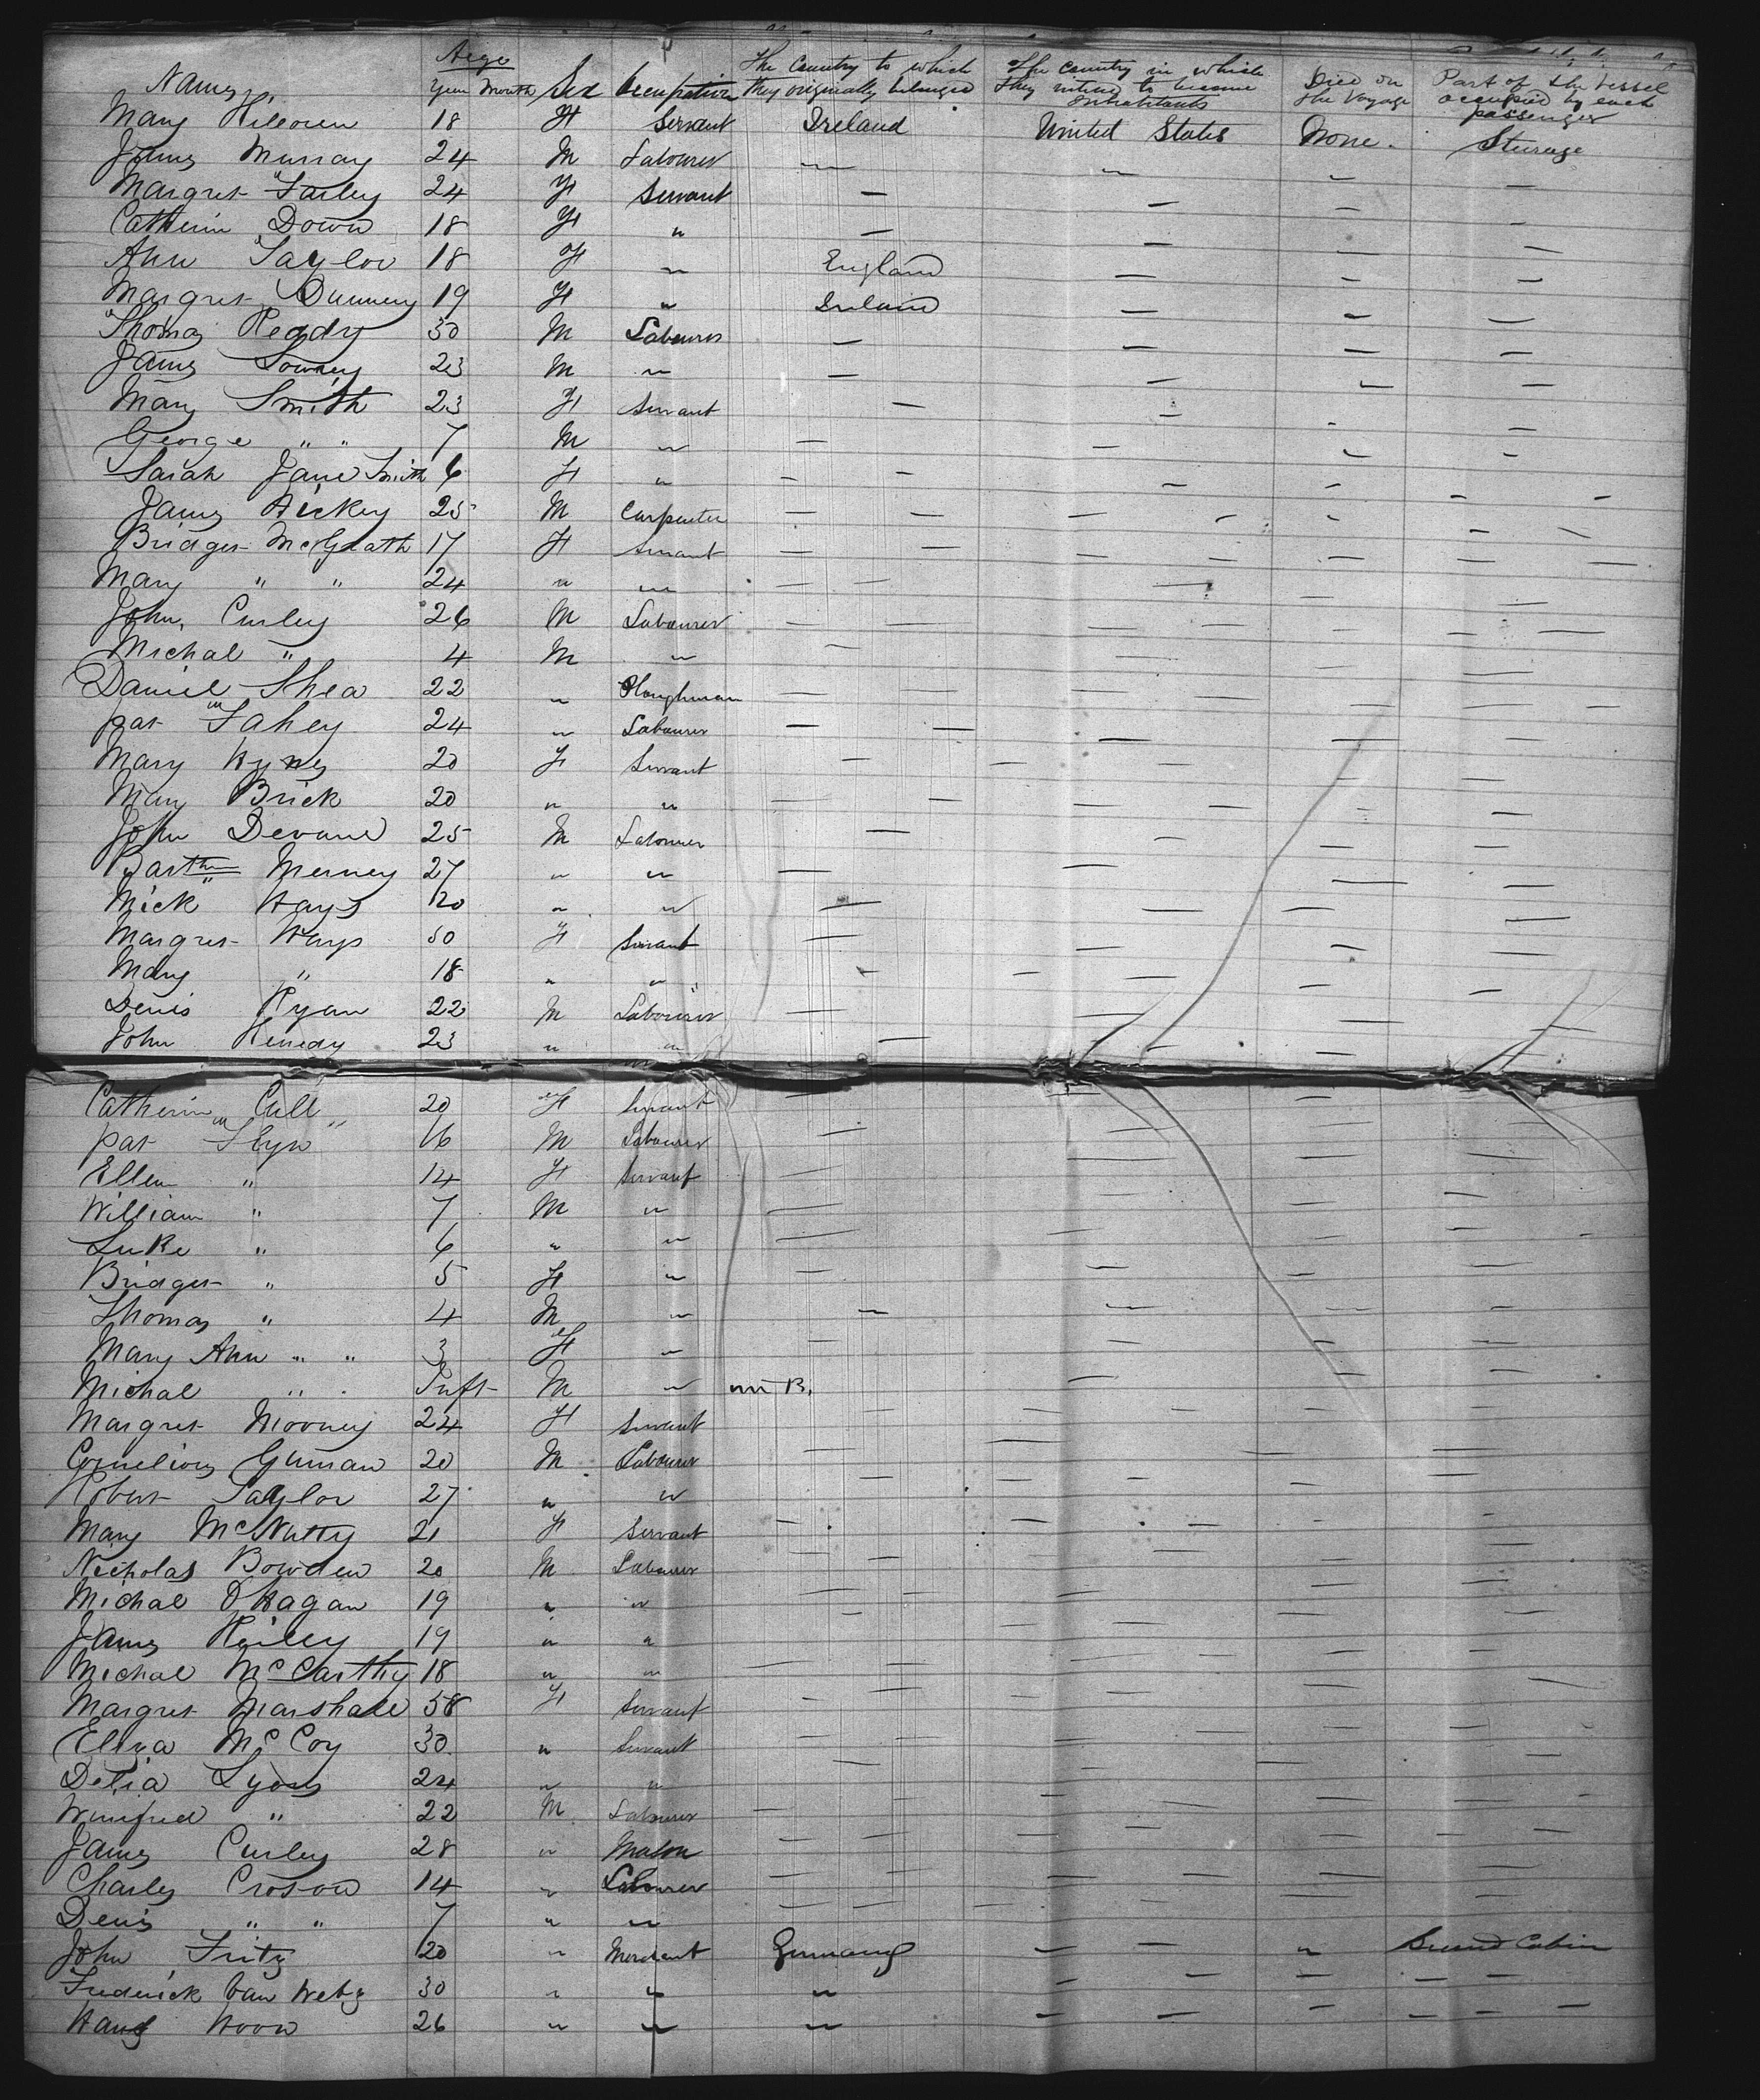 Names Aege Year Month Sex Occupation The Country to which they originally belonged The country in which they intend to become Inhabitants Died on the Voyage Part of the Vessel occupied by each passenger
Mary Kilcoren 18 F Servant Ireland United States None. Steerage
James Murray 24 M Labourer — — — —
Margret Farley 24 F Servant — — — —
Catherin Down 18 F " — — — —
Ann Taylor 18 F " England — — —
Margret Dunnery 19 F " Ireland — — —
Thomas Reddy 30 M Labourer — — — —
James Lowney 23 M " — — — —
Mary Smith 23 F Servant — — — —
George " " 7 M " — — — —
Sarah Jane Smith 6 F " — — — —
James Hickey 25 M Carpenter — — — —
Bridget McGrath 17 F Servant — — — —
Mary " " 24 " " — — — —
John Curley 26 M Labourer — — — —
Michal " 4 M " — — — —
Daniel Shea 22 " Ploughman — — — —
pat Fahey 24 " Labourer — — — —
Mary Hynes 20 F Servant — — — —
Mary Brick 20 " " — — — —
John Devane 25 M Labourer — — — —
Barthw Merney 27 " " — — — —
Mick Hays 20 " " — — — —
Margret Hays 50 F Servant — — — —
Mary " 18 " " — — — —
Denis Ryan 22 M Labourer — — — —
John Kenedy 23 " " — — — —
Catherin Cull 20 F Servant — — — —
pat Flyn 16 M Labourer — — — —
Ellen " 14 F Servant — — — —
William " 7 M " — — — —
Luke " 6 " " — — — —
Bridget " 5 F " — — — —
Thomas " 4 M " — — — —
Mary Ann " " 3 F " — — — —
Michal " Inft M " — — —
Margret Mooney 24 F Servant — — — —
Cornelious Guinan 20 M Labourer — — — —
Robert Taylor 27 " " — — — —
Mary McNutty 21 F Servant — — — —
Nicholas Bowden 20 M Labourer — — — —
Michal OHagan 19 " " — — — —
James Reiley 19 " " — — — —
Michal McCarthy 18 " " — — — —
Margret Marshall 58 F Servant — — — —
Eliza McCoy 30 " Servant — — — —
Delia Lyons 24 " " — — — —
Winifred " 22 M Labourer — — — —
James Curley 28 " Mason — — — —
Charles Croson 14 " Labourer — — — —
Denis " " 7 " " — — — —
John Fritz 20 " Merchant Germany — — " Second Cabin
Frederick Van Wetz 30 " " " — — — —
Hans Hoow 26 " " " — — — —